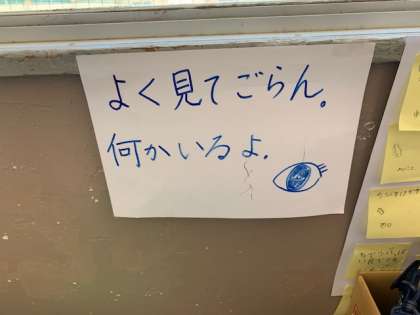 よく見てごらん。
何かいるよ.